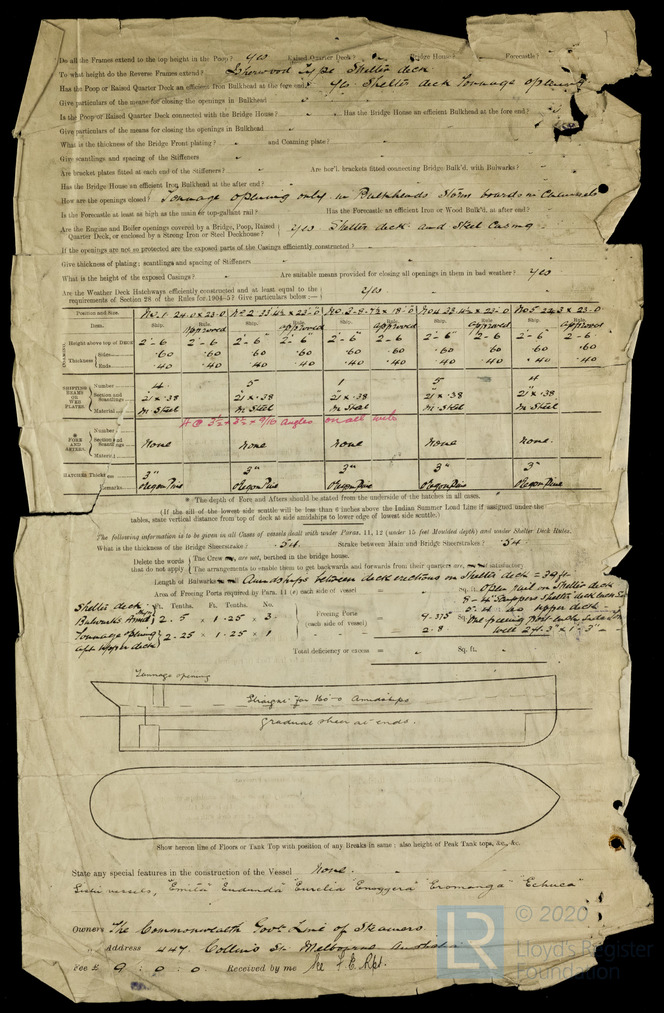 Do all the Frames extend to the top height in the Poop? Yes Raised Quarter Deck? Bridge House? Forecastle?
To what height do the Reverse Frames extend? Isherwood Type Shelter deck
Has the Poop or Raised Quarter Deck an efficient Iron Bulkhead at the fore end? Yes Shelter deck Tonnage opening
Give particulars of the means for closing the openings in Bulkhead
Is the Poop or Raised Quarter Deck connected with the Bridge House? Has the Bridge House an efficient Bulkhead at the fore end?
Give particulars of the means for closing the openings in Bulkhead
What is the thickness of the Bridge Front plating? and Coaming plate?
Give scantlings and spacing of the Stiffeners
Are bracket plates fitted at each end of the Stiffeners? Are hor'l. brackets fitted connecting Bridge Bulk'd. with Bulwarks?
Has the Bridge House an efficient Iron Bulkhead at the after end?
How are the openings closed? Tonnage opening only in Bulkheads Storm boards in Channels
Is the Forecastle at least as high as the main or top-gallant rail? Has the Forecastle an efficient Iron or Wood Bulk'd, at after end?
Are the Engine and Boiler openings covered by a Bridge, Poop, Raised Quarter Deck, or enclosed by a Strong Iron or Steel Deckhouse? Yes Shelter deck and Steel Casing
If the openings are not so protected are the exposed parts of the Casings efficiently constructed?
Give thickness of plating; scantlings and spacing of Stiffeners
What is the height of the exposed Casings? Are suitable means provided for closing all openings in them in bad weather? Yes
Are the Weather Deck Hatchways efficiently constructed and at least equal to the requirements of Section 28 of the Rules for 1904-5? Give particulars below:— Yes
Position and Size. No. 1 24.0 x 23.0 No. 2 33.4½ x 23.0 No. 3 8.7½ x 18.0 No 4 33.4½ x 23.0 No 5 22.3 x 23.0
Item. Ship. Rule. Approved Ship. Rule. approved Ship. Rule. approved Ship. Rule. approved Ship. Rule. approved
COAMING Height above top of Deck 2'-6 2'-6 2'-6" 2'-6" 2'-6" 2'-6 2'-6" 2'-6 2'-6 2'-6
Thickness Sides .60 .60 .60 .60 .60 .60 .60 .60 .60 .60
Ends .40 .40 .40 .40 .40 .40 .40 .40 .40 .40
SHIFTING BEAMS OR WEB PLATES Number 4. 5 1 5 4
Section and Scantlings 21 x .38 21 x .38 21 x .38 21 x .38 21 x .38
Material M. Steel M. Steel M. Steel M. Steel M. Steel
4 @ 3½ x 3½ x 9/16 angles on all webs
FORE AND AFTERS. Number
Section and Scantlings None None None None None.
Material
HATCHES Thickness 3" 3" 3" 3" 3"
Remarks Oregon Pine Oregon Pine Oregon Pine Oregon Pine Oregon Pine
* The depth of Fore and Afters should be stated from the underside of the hatches in all cases.
(If the sill of the lowest side scuttle will be less than 6 inches above the Indian Summer Load Line if assigned under the tables, state vertical distance from top of deck at side amidships to lower edge of lowest side scuttle.)
The following information is to be given in all Cases of vessels dealt with under Paras. 11, 12 (under 15 feet Moulded depth) and under Shelter Deck Rules.
What is the thickness of the Bridge Sheerstrake? .54 Strake between Main and Bridge Sheerstrakes? .54.
Delete the words that do not apply The Crew are, are not, berthed in the bridge house.
The arrangements to enable them to get backwards and forwards from their quarters are, not satisfactory
Length of Bulwarks Amidships between deck erections on Shelter deck = 39 ft.
Area of Freeing Ports required by Para. 11 (e) each side of vessel = Sq. ft.
Open part on Shelter deck
8 - 4" Scuppers Shelter deck each side
Shelter deck Ft. Tenths. Ft. Tenths. No.
Bulwarks 2.5 x 1.25 x 3 Freeing Ports (each side of vessel) = 9.375 Sq. 5-4" as upper deck
Tonnage opening aft upper deck 2.25 x 1.25 x 1 2.8 One freeing Port each side in well 2 ft. 3" x 1'-3"
Total deficiency or excess = Sq. ft.
Tonnage opening
Straight for 160-0 Amidships
gradual sheer at ends.
Show hereon line of Floors or Tank Top with position of any Breaks in same; also height of Peak Tank tops, &c., &c.
State any special features in the construction of the Vessel None.
Sister vessels, "Emita" "Eudunda" "Eurelia" "Enoggera" "Eromanga" "Echuca"
Owners The Commonwealth Govt. Line of Steamers
Address 447. Collins St. Melbourne Australia
Fee £ 9 : 0 : 0. Received by me
LR © 2020
Lloyd's Register
Foundation